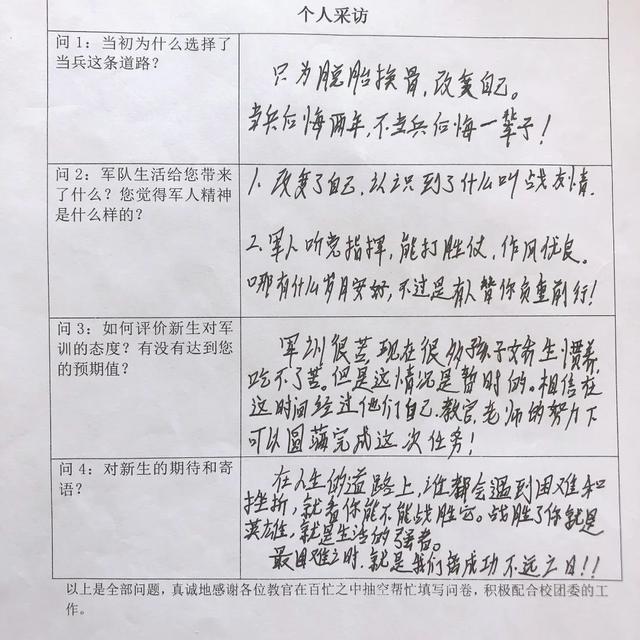 个人采访
问 1：当初为什么选择了
当兵这条道路？
只为脱胎换骨，改变自己。
当兵后悔两年，不当兵后悔一辈子！
问 2：军队生活给您带来
了什么？您觉得军人精神
是什么样的？
1. 改变了自己，认识到了什么叫战友情.
2. 军人听党指挥，能打胜仗，作风优良。
哪有什么岁月安好，不过是有人替你负重前行！
问 3：如何评价新生对军
训的态度？有没有达到您
的预期值？
军训很苦，现在很多孩子娇生惯养，
吃不了苦。但是这情况是暂时的。相信在
这时间经过他们自己、教官、老师的努力下
可以圆满完成这次任务！
问 4：对新生的期待和寄
语？
在人生的道路上，谁都会遇到困难和
挫折，就看你能不能战胜它。战胜了你就是
英雄，就是生活的强者。
最困难之时，就是我们离成功不远之日！！
以上是全部问题，真诚地感谢各位教官在百忙之中抽空帮忙填写问卷，积极配合校团委的工
作。